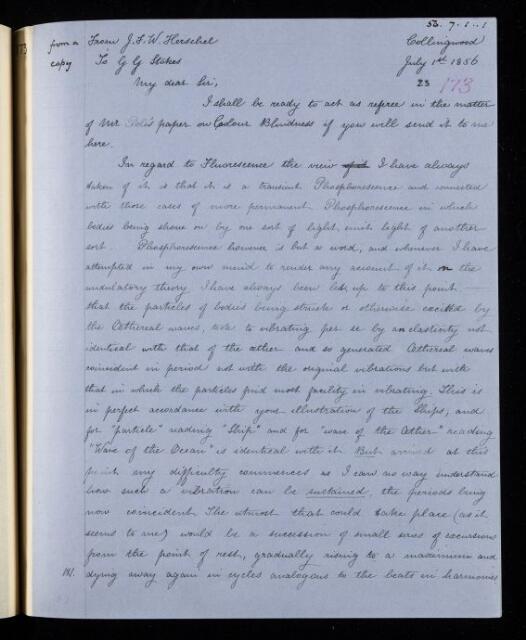 53. 7. 1. 1
from a From J. F. W. Herschel Collingwood
copy To G G Stokes July 1st 1856
23 173
My dear Sir,
I shall be ready to act as referee in the matter
of Mr Pole's paper on Colour Blindness if you will send it to me
here.
In regard to Fluorescence the view I have always
taken of it is that it is a transient Phosphorescence and connected
with those cases of more permanent Phosphorescence in which
bodies being shone on by one sort of light, emit light of another
sort. Phosphorescence however is but a word, and whenever I have
attempted in my own mind to render any account of it on the
undulatory theory, I have always been led up to this point —
that the particles of bodies being struck or otherwise excited by
the Aethereal waves, take to vibrating per se by an elasticity not
identical with that of the aether and so generated Aethereal waves
coincident in period not with the original vibrations but with
that in which the particles find most facility in vibrating. This is
in perfect accordance with your illustration of the Ships, and
for "particle" reading "Ship" and for "wave of the Aether" reading
"Wave of the Ocean" is identical with it. But arrived at this
point my difficulty commences as I can no way understand
how such a vibration can be sustained, the periods being
non coincident. The utmost that could take place (as it
seems to me) would be a succession of small arcs of excursions
from the point of rest, gradually rising to a maximum and
dying away again in cycles analogous to the beats in harmonics